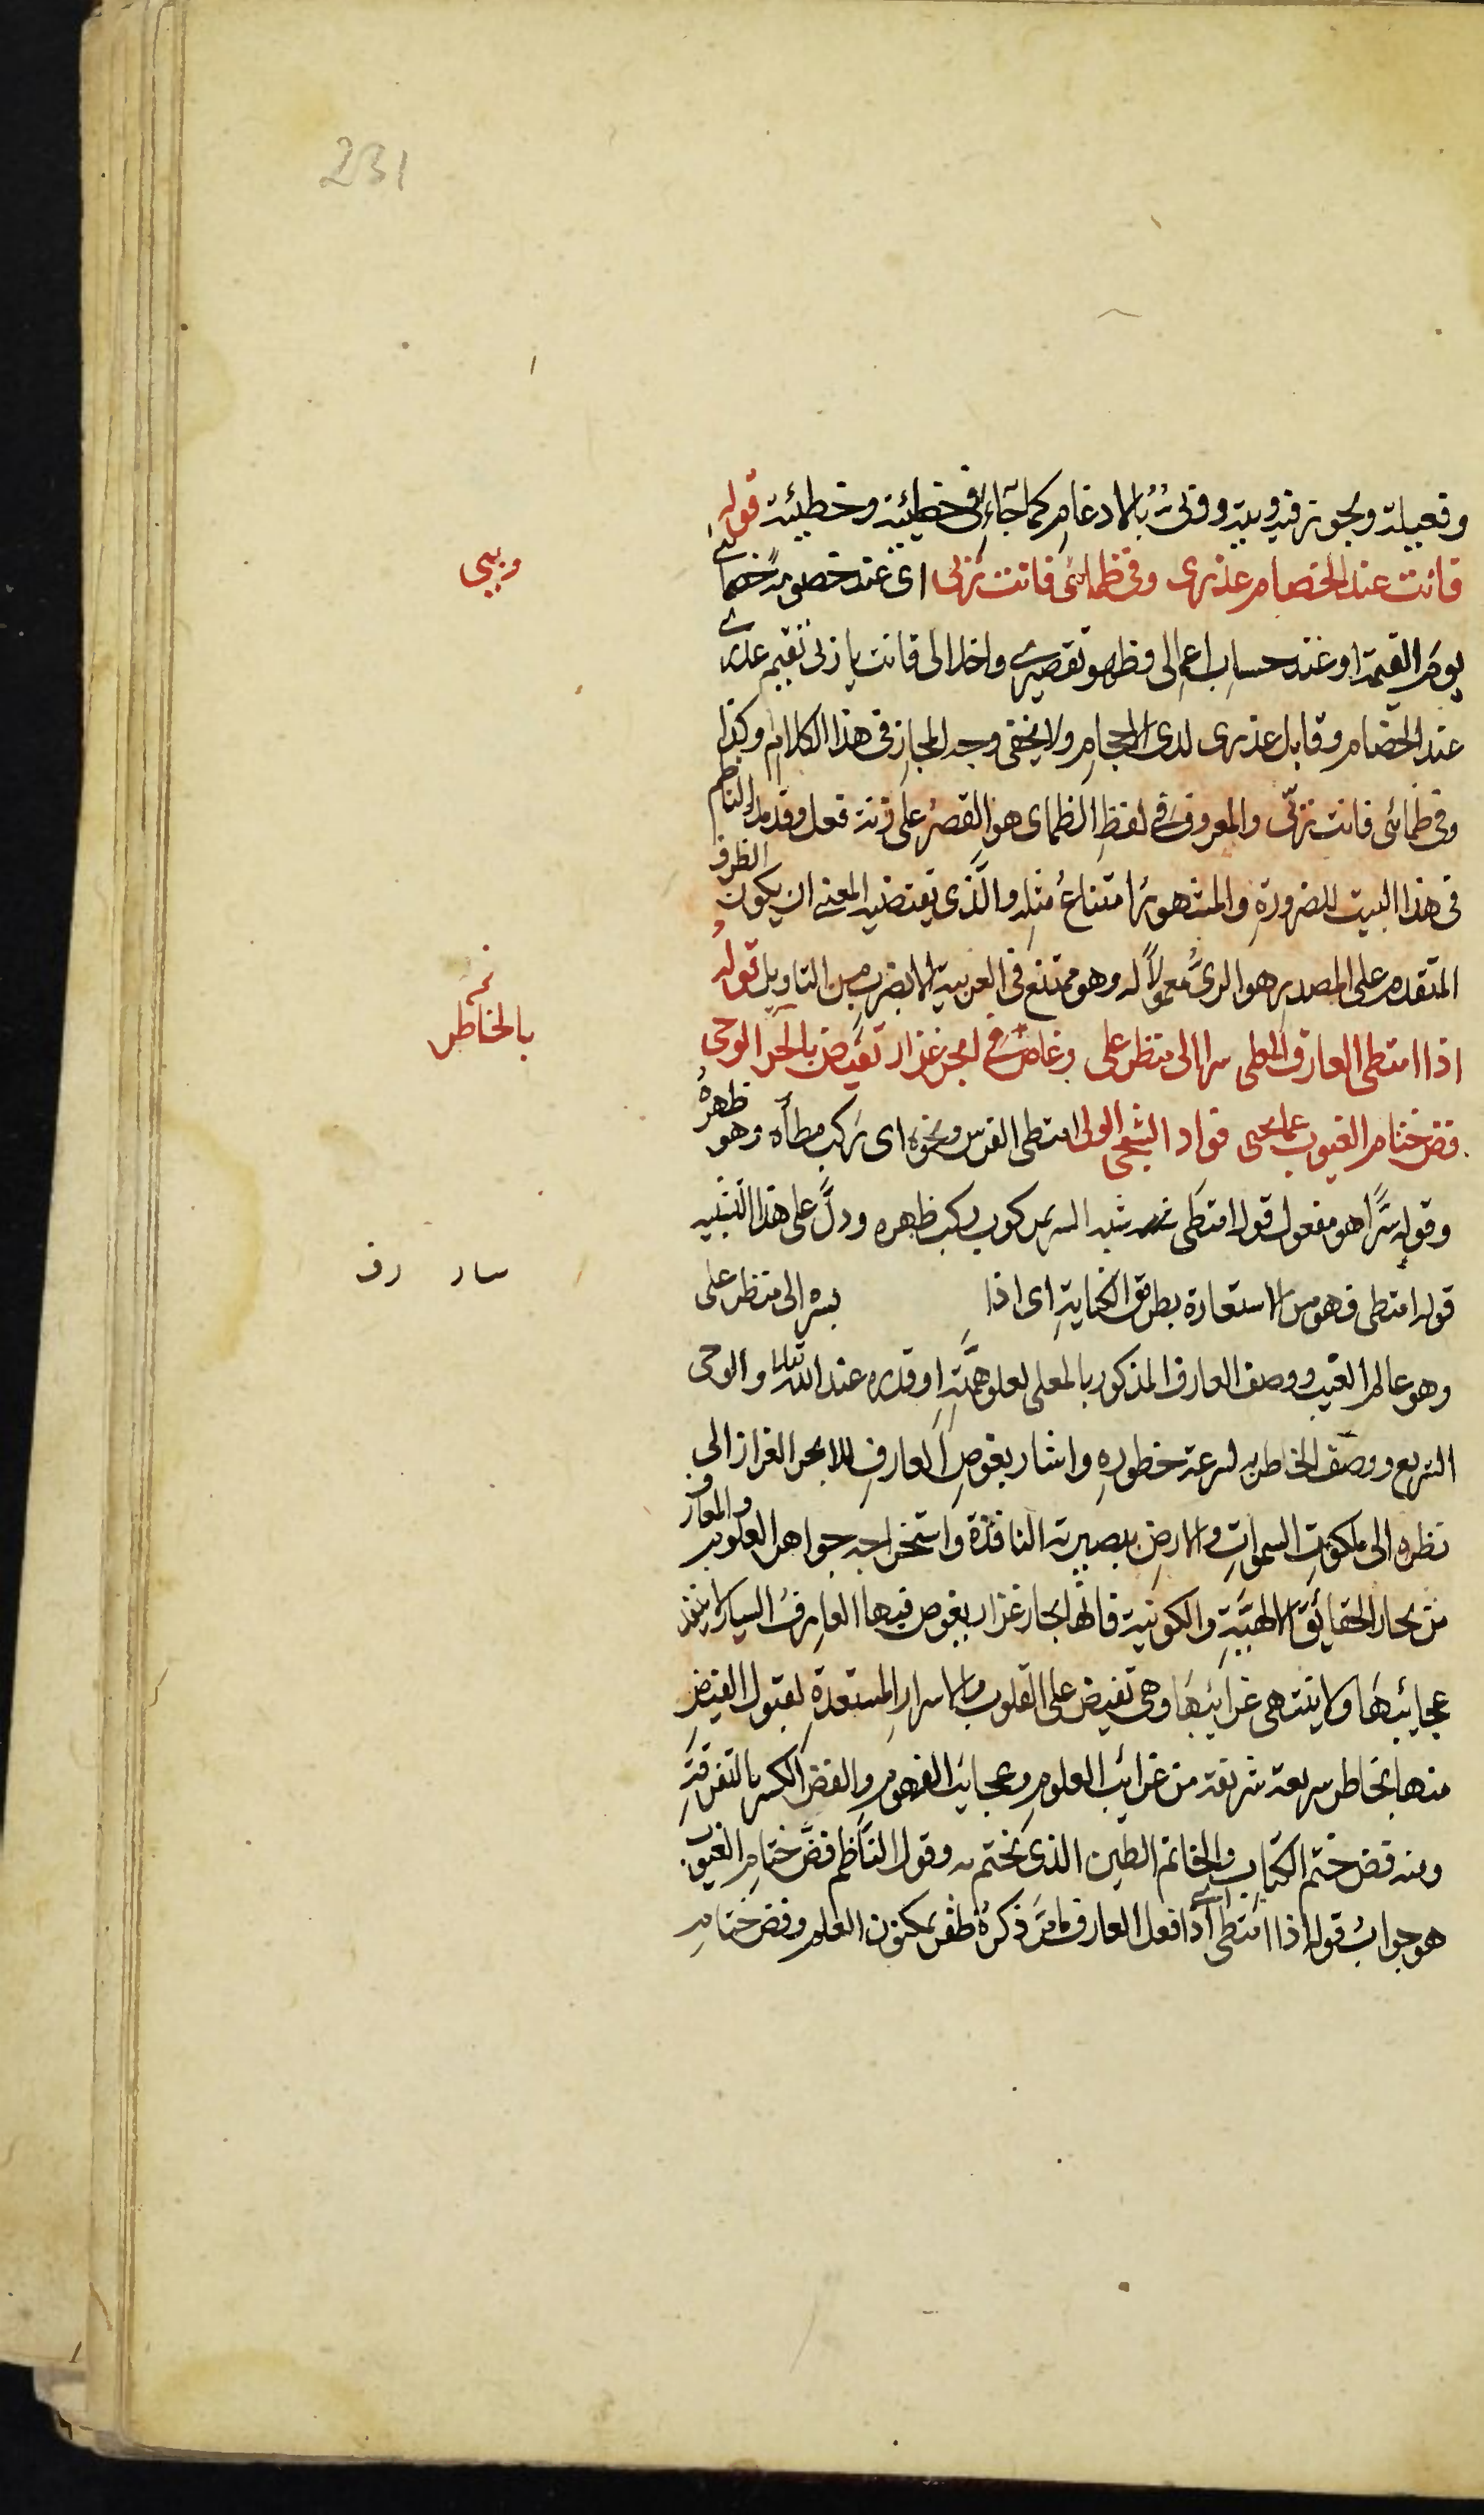 231
وفعيلة ويجوز فيه وبية وفئة بالادغام كما جاء في خطيئة وخطيئة قوله
فانت عند الخصام عذري وفي ظمائي فانت ريي اى عند خصومة خصمائي
وريي
يوم القيمة او عند حساب اعمالى وظهور تقصيرى واخلالى فانت يا ربى تقيم عذرى
عند الخصام وقابل عذرى لدى ولا يخفى وجه المجاز فى هذا الكلام وكذا
وفى ظمائى فانت ريّى والمعروف في لفظ الظماى هو القصر على زنة فعل وقد مده الناظم
فى هذا البيت للضرورة والمشهور امتناع مثله والذى يقتضيه المعنى ان يكون الظرف
المتقدم على المصدر هو الرى معمولا له وهو ممتنع فى العربية الا بضرب من التاويل قوله
اذا امتطى العارف المعلى سرا الى منظر على وغاص في ابحر غزار تفيض بالخاطر الوحى
بالخاطر
فض ختام الغيوب عما يحيى فواد الشجى الولى امتطى الفرس ونحوه اى ركب مطاه وهو ظهره
وقوله سرًّا هو مفعول قوله امتطى شبه السر بمركوب يركب ظهره ودلّ على هذا التشبيه
قوله امتطى فهو من الاستعارة بطريق الكناية اى اذا بسره الى منظر على
سار رف
وهو عالم الغيب ووصف العارف المذكور بالمعلى لعلو همته او قدره عند الله تعالى والوحى
السريع ووصف الخاطر به لسرعة خطوره واشار بغوص العارف للابحر الغزار الى
نظره الى ملكوت السموات والارض ببصيرته النافذة واستخراجه جواهر العلوم والمعارف
من بحار الحقائق الالهية والكونية فانها بحار غزار يغوص فيها العارف السيار لا ينفد
عجايبها ولا ينتهى غرائبها وهى تفيض على القلوب والاسرار المستعدة لقبول الفيض
منها بخاطر سريعة شريفة من غرائب العلوم وعجايب الفهوم والفض الكسر بالتفرقة
ومنه فض ختم الكتاب والخاتم الطين الذى يختم به وقول الناظم فضّ ختام الغيوب
هو جواب قوله اذا امتطى اى اذا فعل العارف ما مرّ ذكره ظفر بمكنون العلم وفض ختام